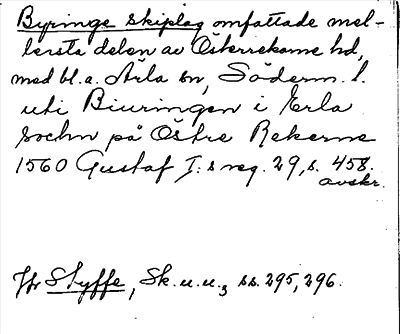 Byringe skiplag omfattade mel-
lersta delen av Österrekarne hd,
med bl.a. Ärla sn, Söderm. l.
uti Biuringen i Erla
sochn på Östre Rekerne
1560 Gustaf I:s reg. 29, s. 458.
avskr.
Jfr Styffe, Sk.u.u., ss. 295, 296.